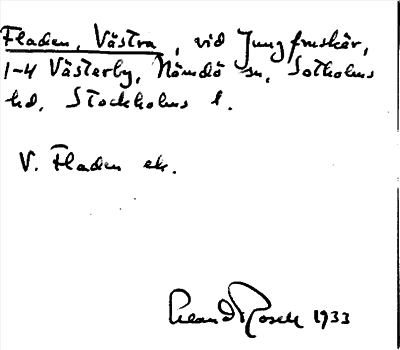 Fladen, Västra, vid Jungfruskär,
1-4 Västerby, Nämdö sn, Sotholms
hd, Stockholms l.
V. Fladen ek.
Rosell 1933